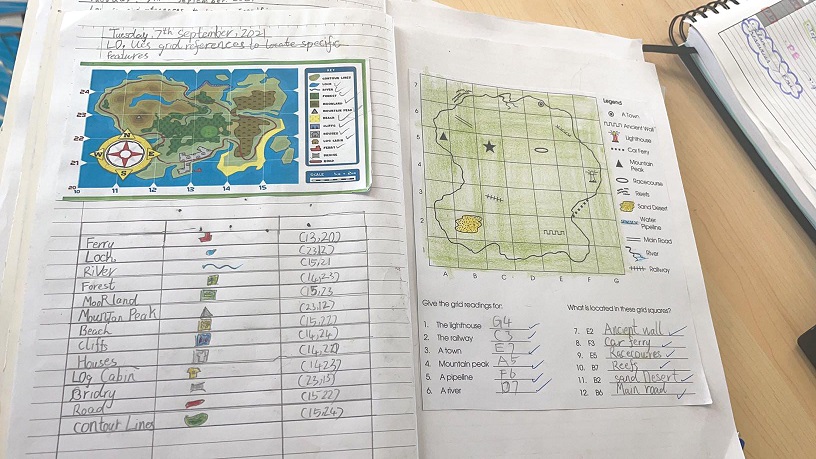 Tuesday, 7th September, 2021
LO, Use grid references to locate specific
features
KEY
CONTOUR LINES
LOCH
RIVER
FOREST
MOORLAND
MOUNTAIN PEAK
BEACH
CLIFFS
HOUSES
LOG CABIN
FERRY
BRIDGE
ROAD
SCALE
24
23
22
21
20
10 11 12 13 14 15
N
W E
S
Ferry (13,20)
Loch (23,12)
River (15,21
Forest (14,23)
Moorland (15,23
Mountan Peak (23,12)
Beach (15,22)
Cliffs (14,24)
Houses (14,22)
Log Cabin (14,23)
Bridry (23,15)
Road (15,22)
contour Lines (15,24)
7
6
5
4
3
2
1
A B C D E F G
Legend
A Town
Ancient Wall
Lighthouse
Car Ferry
Mountain
Peak
Racecourse
Reefs
Sand Desert
Water
Pipeline
Main Road
River
Railway
Give the grid readings for:
1. The lighthouse G4
2. The railway C3
3. A town E7
4. Mountain peak A5
5. A pipeline F6
6. A river D7
What is located in these grid squares?
7. E2 Ancient wall
8. F3 Car ferry
9. E5 Racecourses
10. B7 Reefs
11. B2 sand Desert
12. B6 Main road